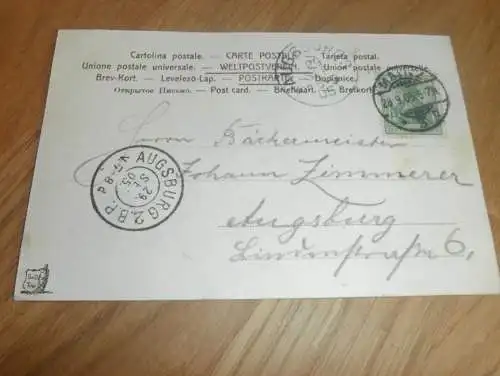 Cartolina postale. — CARTE POSTALE — Tarjeta postal.
Unione postale universale. — WELTPOSTVEREIN. — Union postale universelle.
Brev-Kort. — Levelező-Lap. — POSTKARTE — Dopisnice.
Открытое Письмо. — Post card. — Briefkaart. — Brefkort.
Herrn Bäckermeister
Johann Zimmerer
Augsburg
6,
AUGSBURG 2.B.P.
29.
SEP.
05